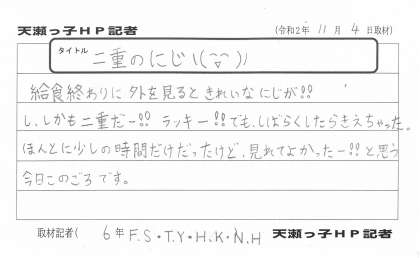 天瀬っ子HP記者 (令和2年 11月 4日取材)
タイトル 二重のにじ\(^▽^)/
給食終わりに外を見るときれいなにじが!!
し、しかも二重だー!! ラッキー!!でも、しばらくしたらきえちゃった。
ほんとに少しの時間だけだったけど、見れてよかったー!!と思う
今日このごろです。
取材記者( 6年F.S・T.Y・H.K・N.H 天瀬っ子HP記者